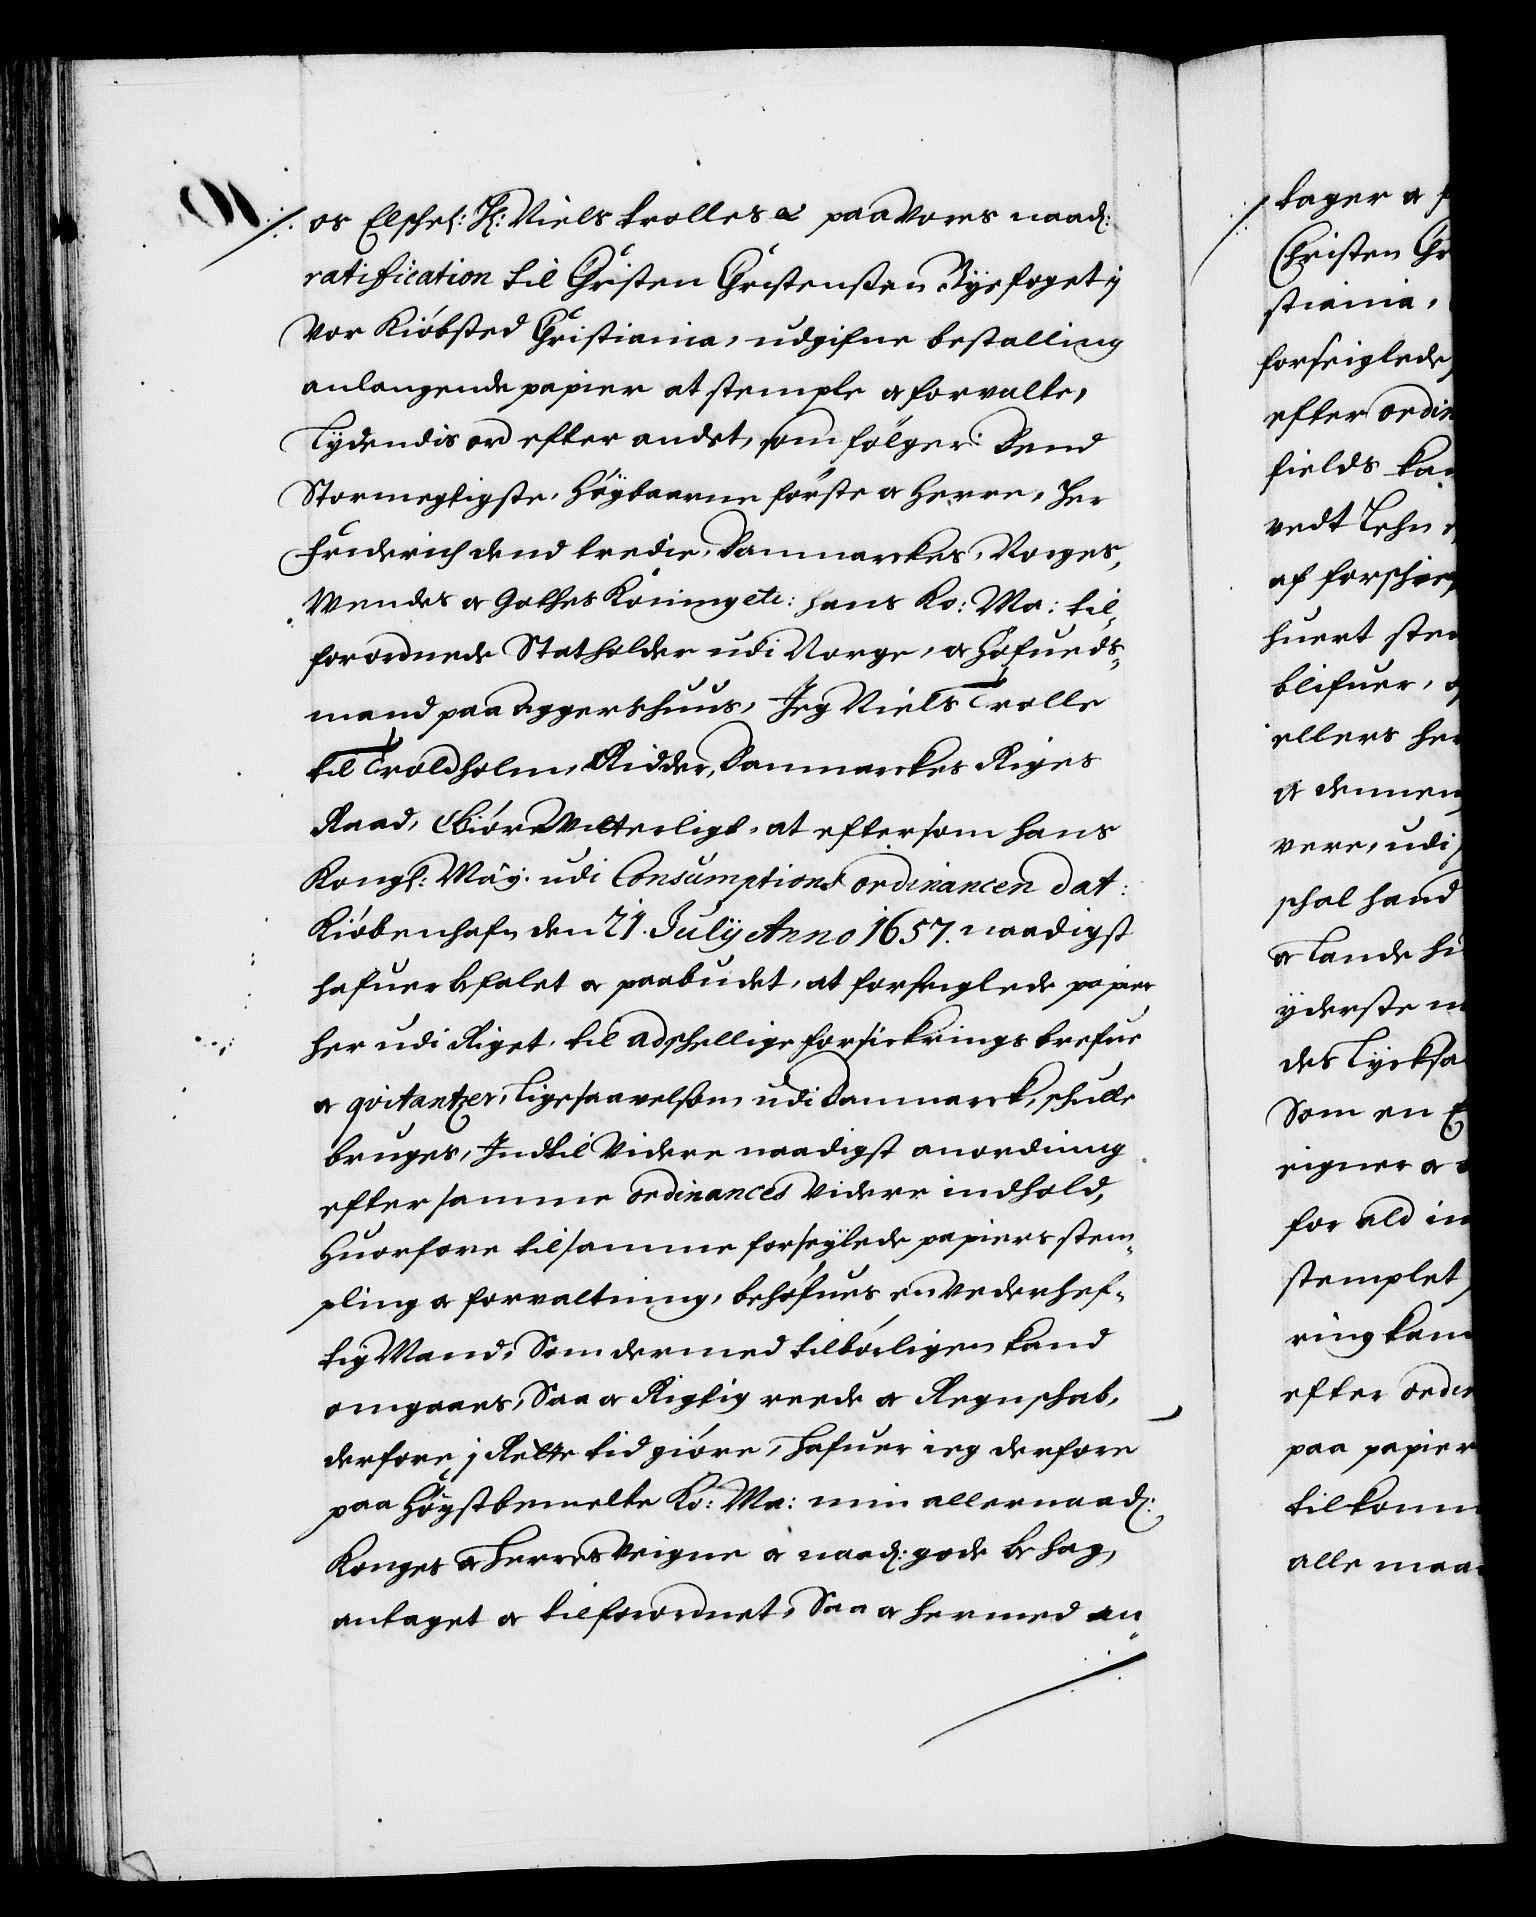 os Elschel: H: Niels Trolles &c paa Vores naad:
ratification til Christen Christenssen Byefoget j
Vor Kiöbsted Christiania, udgifne bestalling
anlangende papier at stemple & forvalte,
Lydendis ord efter andet, som fölger: Dend
Stormegtigste, Högbaarne förste & Herre, Her
Friderich dend tredie, Danmarckes, Norges,
Wendes & Gothes Konning etc: hans Ko: Ma: til¬
forordnede Statholder udi Norge, & Höfueds¬
mand paa Aggershuus, Jeg Niels Trolle
til Troldholm, Ridder, Danmarckes Riges
Raad, Giöre Vitterligt, at eftersom hans
Kongl: May: udi Consumptions ordinancen dat:
Kiöbenhafn den 21. Julij Anno 1657. naadigst
hafuer befalet & paabudet, at forseiglede papier
her udi Riget, til adschellige forsickrings brefue
& qvitantzer, ligesaavelsom udi Danmarck, schulle
bruges, Indtil Videre naadigst anordning
efter samme ordinances Videre indhold,
Huorfore til samme forseiglede papiers stem¬
pling & forvaltning, behöfues en Vederhef¬
tig Mand, Som dermed tilbörligen kand
omgaaes, Saa & Rigtig reede & Regnschab,
derfore j Rette tid giöre, hafuer ieg derfore
paa Högstbemelte Ko: Ma: min allernaad:
Konges & Herres Veigne & naad: gode behag,
antaget & tilforordnet, Saa & hermed an¬
tager &
Christen Chr
stiania,
forseiglede
efter ordin
fields
vedt Lehn
af forschre
huert sted
blifuer,
ellers her
& dennem
vere, udi
schal hand
& Lande
yderste
des
Som en
eigner &
for ald
stemplet
ring kand
efter ordin
paa papier
tilkomm
alle maa